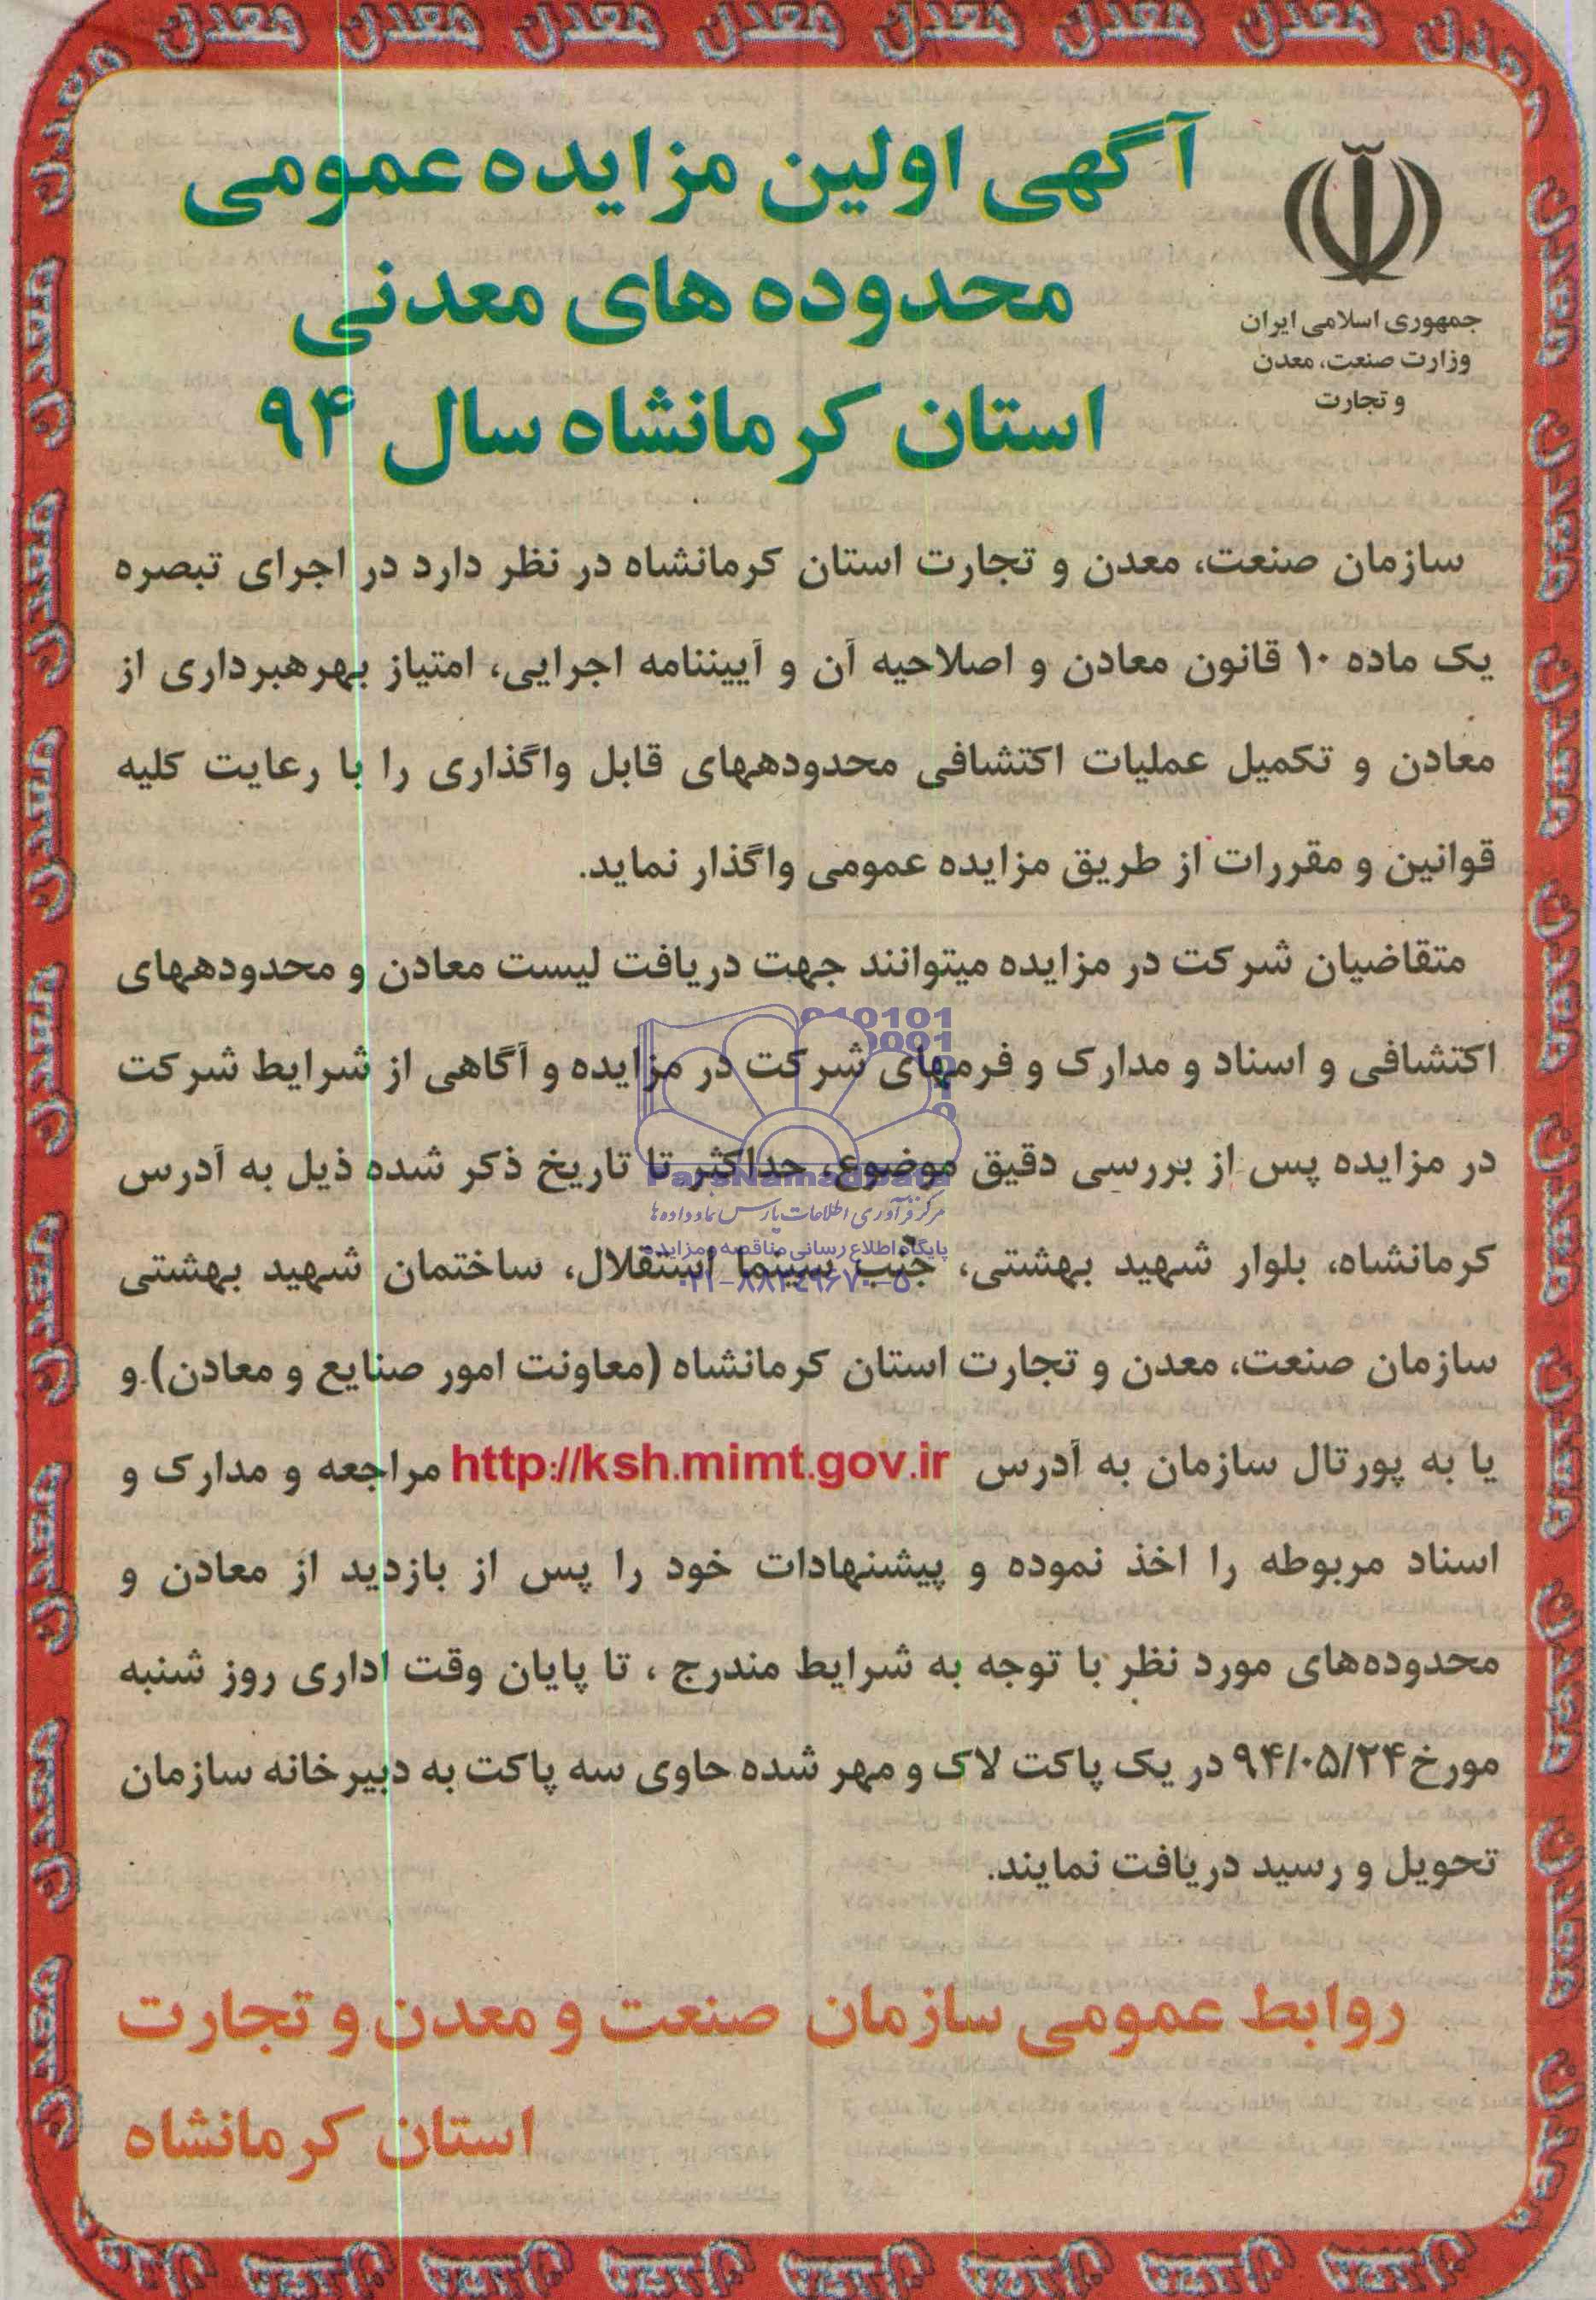 معدن معدن معدن معدن معدن معدن معدن
جمهوری اسلامی ایران
وزارت صنعت، معدن
و تجارت
آگهی اولین مزایده عمومی
محدوده های معدنی
استان کرمانشاه سال ۹۴
سازمان صنعت، معدن و تجارت استان کرمانشاه در نظر دارد در اجرای تبصره
یک ماده ۱۰ قانون معادن و اصلاحیه آن و آییننامه اجرایی، امتیاز بهرهبرداری از
معادن و تکمیل عملیات اکتشافی محدودههای قابل واگذاری را با رعایت کلیه
قوانین و مقررات از طریق مزایده عمومی واگذار نماید.
متقاضیان شرکت در مزایده میتوانند جهت دریافت لیست معادن و محدودههای
اکتشافی و اسناد و مدارک و فرمهای شرکت در مزایده و آگاهی از شرایط شرکت
در مزایده پس از بررسی دقیق موضوع، حداکثر تا تاریخ ذکر شده ذیل به آدرس
کرمانشاه، بلوار شهید بهشتی، جنب سینما استقلال، ساختمان شهید بهشتی
سازمان صنعت، معدن و تجارت استان کرمانشاه (معاونت امور صنایع و معادن) و
یا به پورتال سازمان به آدرس http://ksh.mimt.gov.ir مراجعه و مدارک و
اسناد مربوطه را اخذ نموده و پیشنهادات خود را پس از بازدید از معادن و
محدوده‌های مورد نظر با توجه به شرایط مندرج ، تا پایان وقت اداری روز شنبه
مورخ ۹۴/۰۵/۲۴ در یک پاکت لاک و مهر شده حاوی سه پاکت به دبیرخانه سازمان
تحویل و رسید دریافت نمایند.
روابط عمومی سازمان صنعت و معدن و تجارت
استان کرمانشاه
ParsNamadData
مرکز فرآوری اطلاعات پارس نماد داده ها
پایگاه اطلاع رسانی مناقصه و مزایده
۰۲۱-۸۸۳۴۹۶۷۰-۵